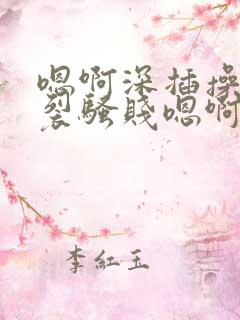 嗯啊深插操
裂騷賤嗯啊
李紅玉